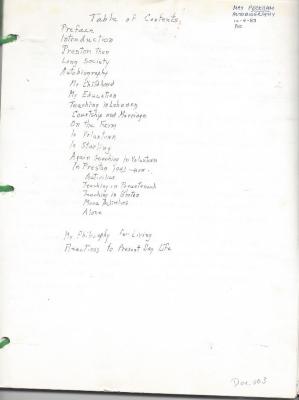 Table of Contents
MAY PECKHAM
AUTOBIOGRAPHY
10-4-83
Preface
Introduction
Preston Then
Long Society
Autobiography
My Childhood
My Education
Teaching in Lebanon
Courtship and Marriage
On the Farm
In Voluntown
In Sterling
Again Teaching in Voluntown
In Preston Too
Activities
Teaching in
Teaching in Groton
More Activities
Alone
My Philosophy for Living
Reactions to Present Day Life
Doc. 003